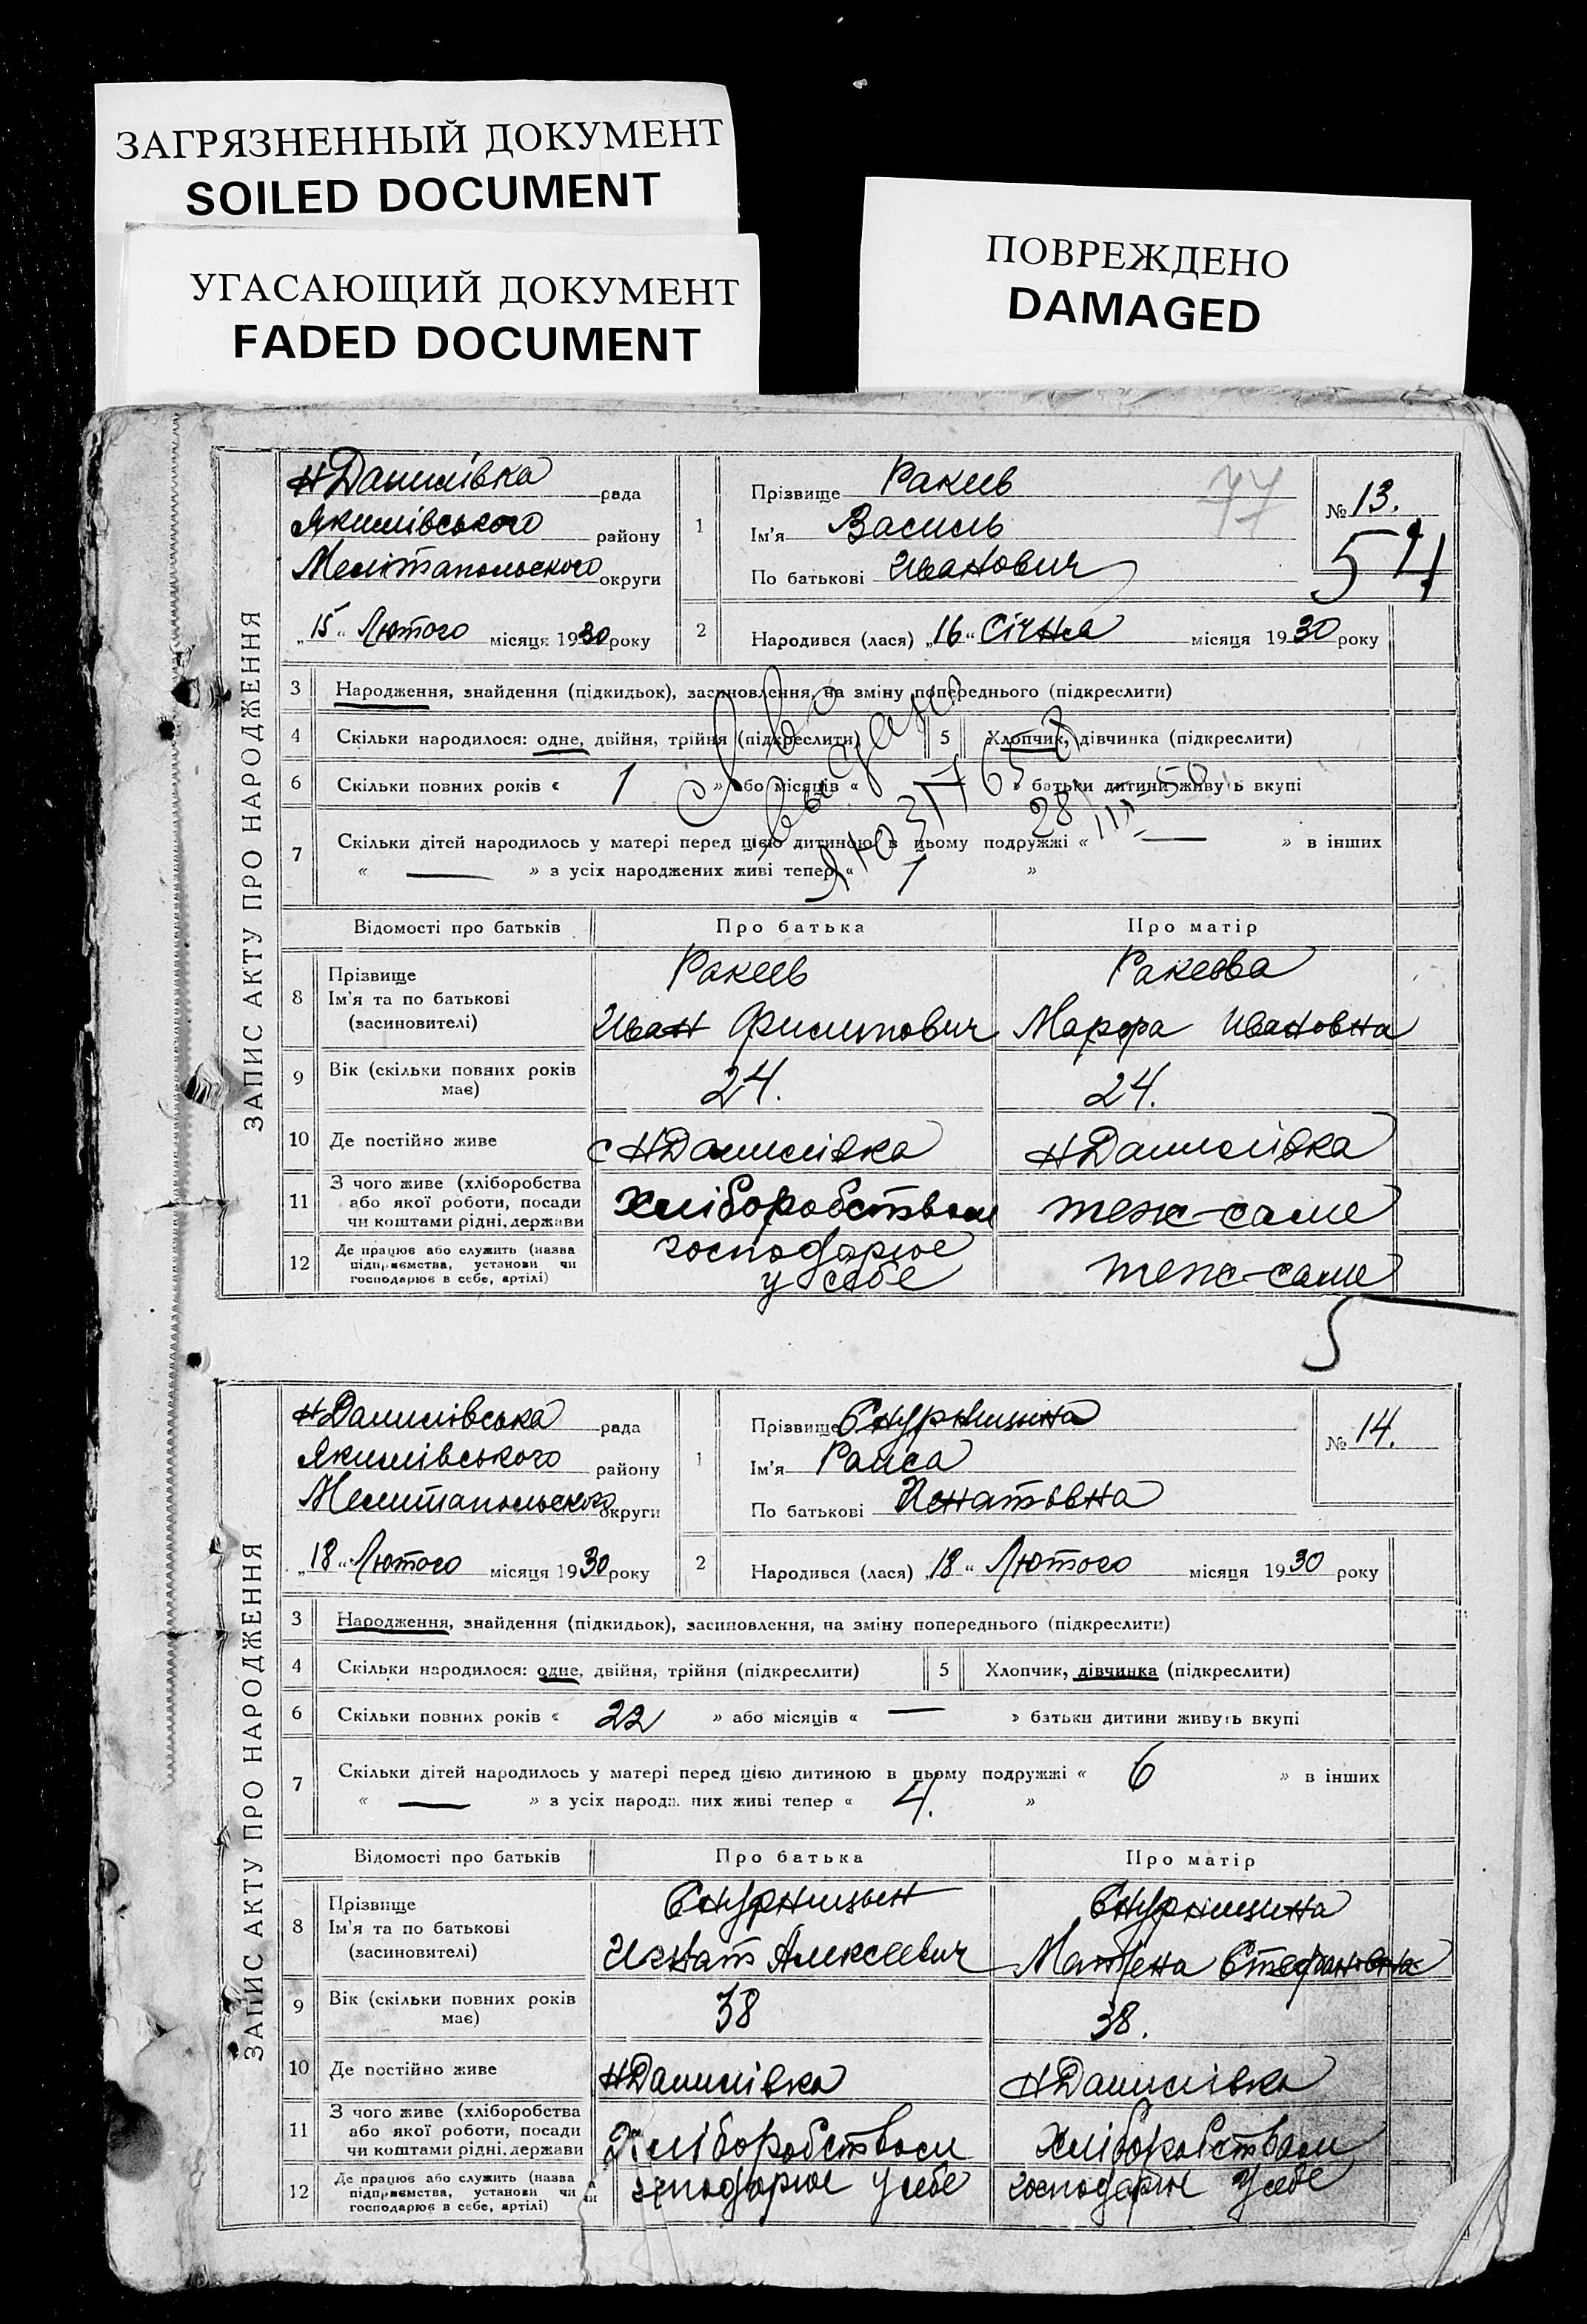 ЗАГРЯЗНЕННЫЙ ДОКУМЕНТ
SOILED DOCUMENT
УГАСАЮЩИЙ ДОКУМЕНТ
FADED DOCUMENT
ПОВРЕЖДЕНО
DAMAGED
ЗАПИС АКТУ ПРО НАРОДЖЕННЯ
Н Данилівка рада
Якимівського району
Мелітапольского округи
„15“ Лютого місяця 1930 року
1 Прізвище Ракеев
Ім'я Василь
По батькові Иванович
77
№ 13.
54
2 Народився (лася) „16“ Січня місяця 1930 року
3 Народження, знайдення (підкидьок), засиновлення, на зміну попереднього (підкреслити)
4 Скільки народилося: одне, двійня, трійня (підкреслити) 5 Хлопчик, дівчинка (підкреслити)
6 Скільки повних років « 1 » або місяців « — » батьки дитини живуть вкупі
7 Скільки дітей народилось у матері перед цією дитиною в цьому подружжі « — » в інших
« — » з усіх народжених живі тепер « 1 »
Відомості про батьків Про батька Про матір
8 Прізвище Ракеев Ракеева
Ім'я та по батькові
(засиновителі) Иван Филипович Марфа Ивановна
9 Вік (скільки повних років має) 24. 24.
10 Де постійно живе с Н Данилівка Н Данилівка
11 З чого живе (хліборобства
або якої роботи, посади
чи коштами рідні, держави Хліборобством теж-саме
12 Де працює або служить (назва
підприємства, установи чи
господарює в себе, артілі) господарює
у себе теж-саме
5
ЗАПИС АКТУ ПРО НАРОДЖЕННЯ
Н Данилівська рада
Якимівського району
Мелитапольского округи
„18“ Лютого місяця 1930 року
1 Прізвище Снурницына
Ім'я Раиса
По батькові Игнатовна
№ 14.
2 Народився (лася) „18“ Лютого місяця 1930 року
3 Народження, знайдення (підкидьок), засиновлення, на зміну попереднього (підкреслити)
4 Скільки народилося: одне, двійня, трійня (підкреслити) 5 Хлопчик, дівчинка (підкреслити)
6 Скільки повних років « 22 » або місяців « — » батьки дитини живуть вкупі
7 Скільки дітей народилось у матері перед цією дитиною в цьому подружжі « 6 » в інших
« — » з усіх народж. них живі тепер « 4. »
Відомості про батьків Про батька Про матір
8 Прізвище Снурницын Снурницина
Ім'я та по батькові
(засиновителі) Игнат Алексеевич Матрена Стефановна
9 Вік (скільки повних років має) 38 38.
10 Де постійно живе Н Данилівка Н Данилівка
11 З чого живе (хліборобства
або якої роботи, посади
чи коштами рідні, держави Хліборобством Хліборобством
12 Де працює або служить (назва
підприємства, установи чи
господарює в себе, артілі) господарює у себе господарює у себе